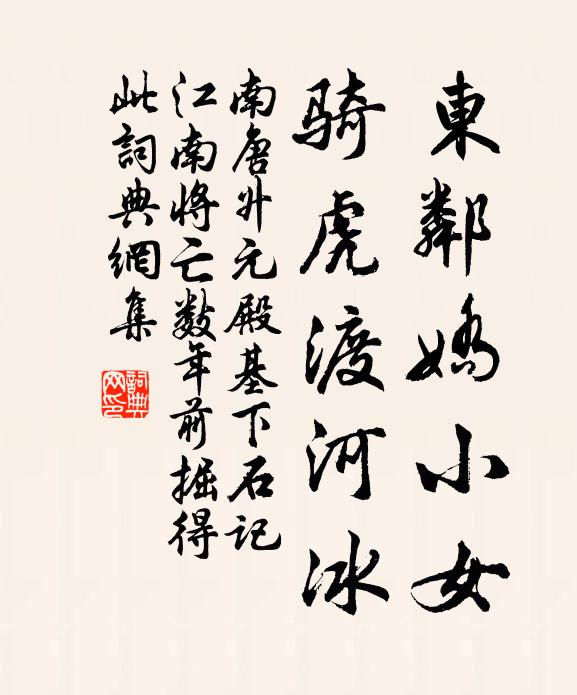 東鄰嬌小女
騎虎渡河冰
南唐升元殿基下石記
江南將亡數年前掘得
此詞典網集
詞典网印